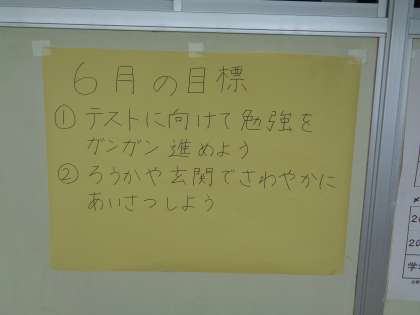 6月の目標
① テストに向けて勉強を
ガンガン進めよう
② ろうかや玄関でさわやかに
あいさつしよう